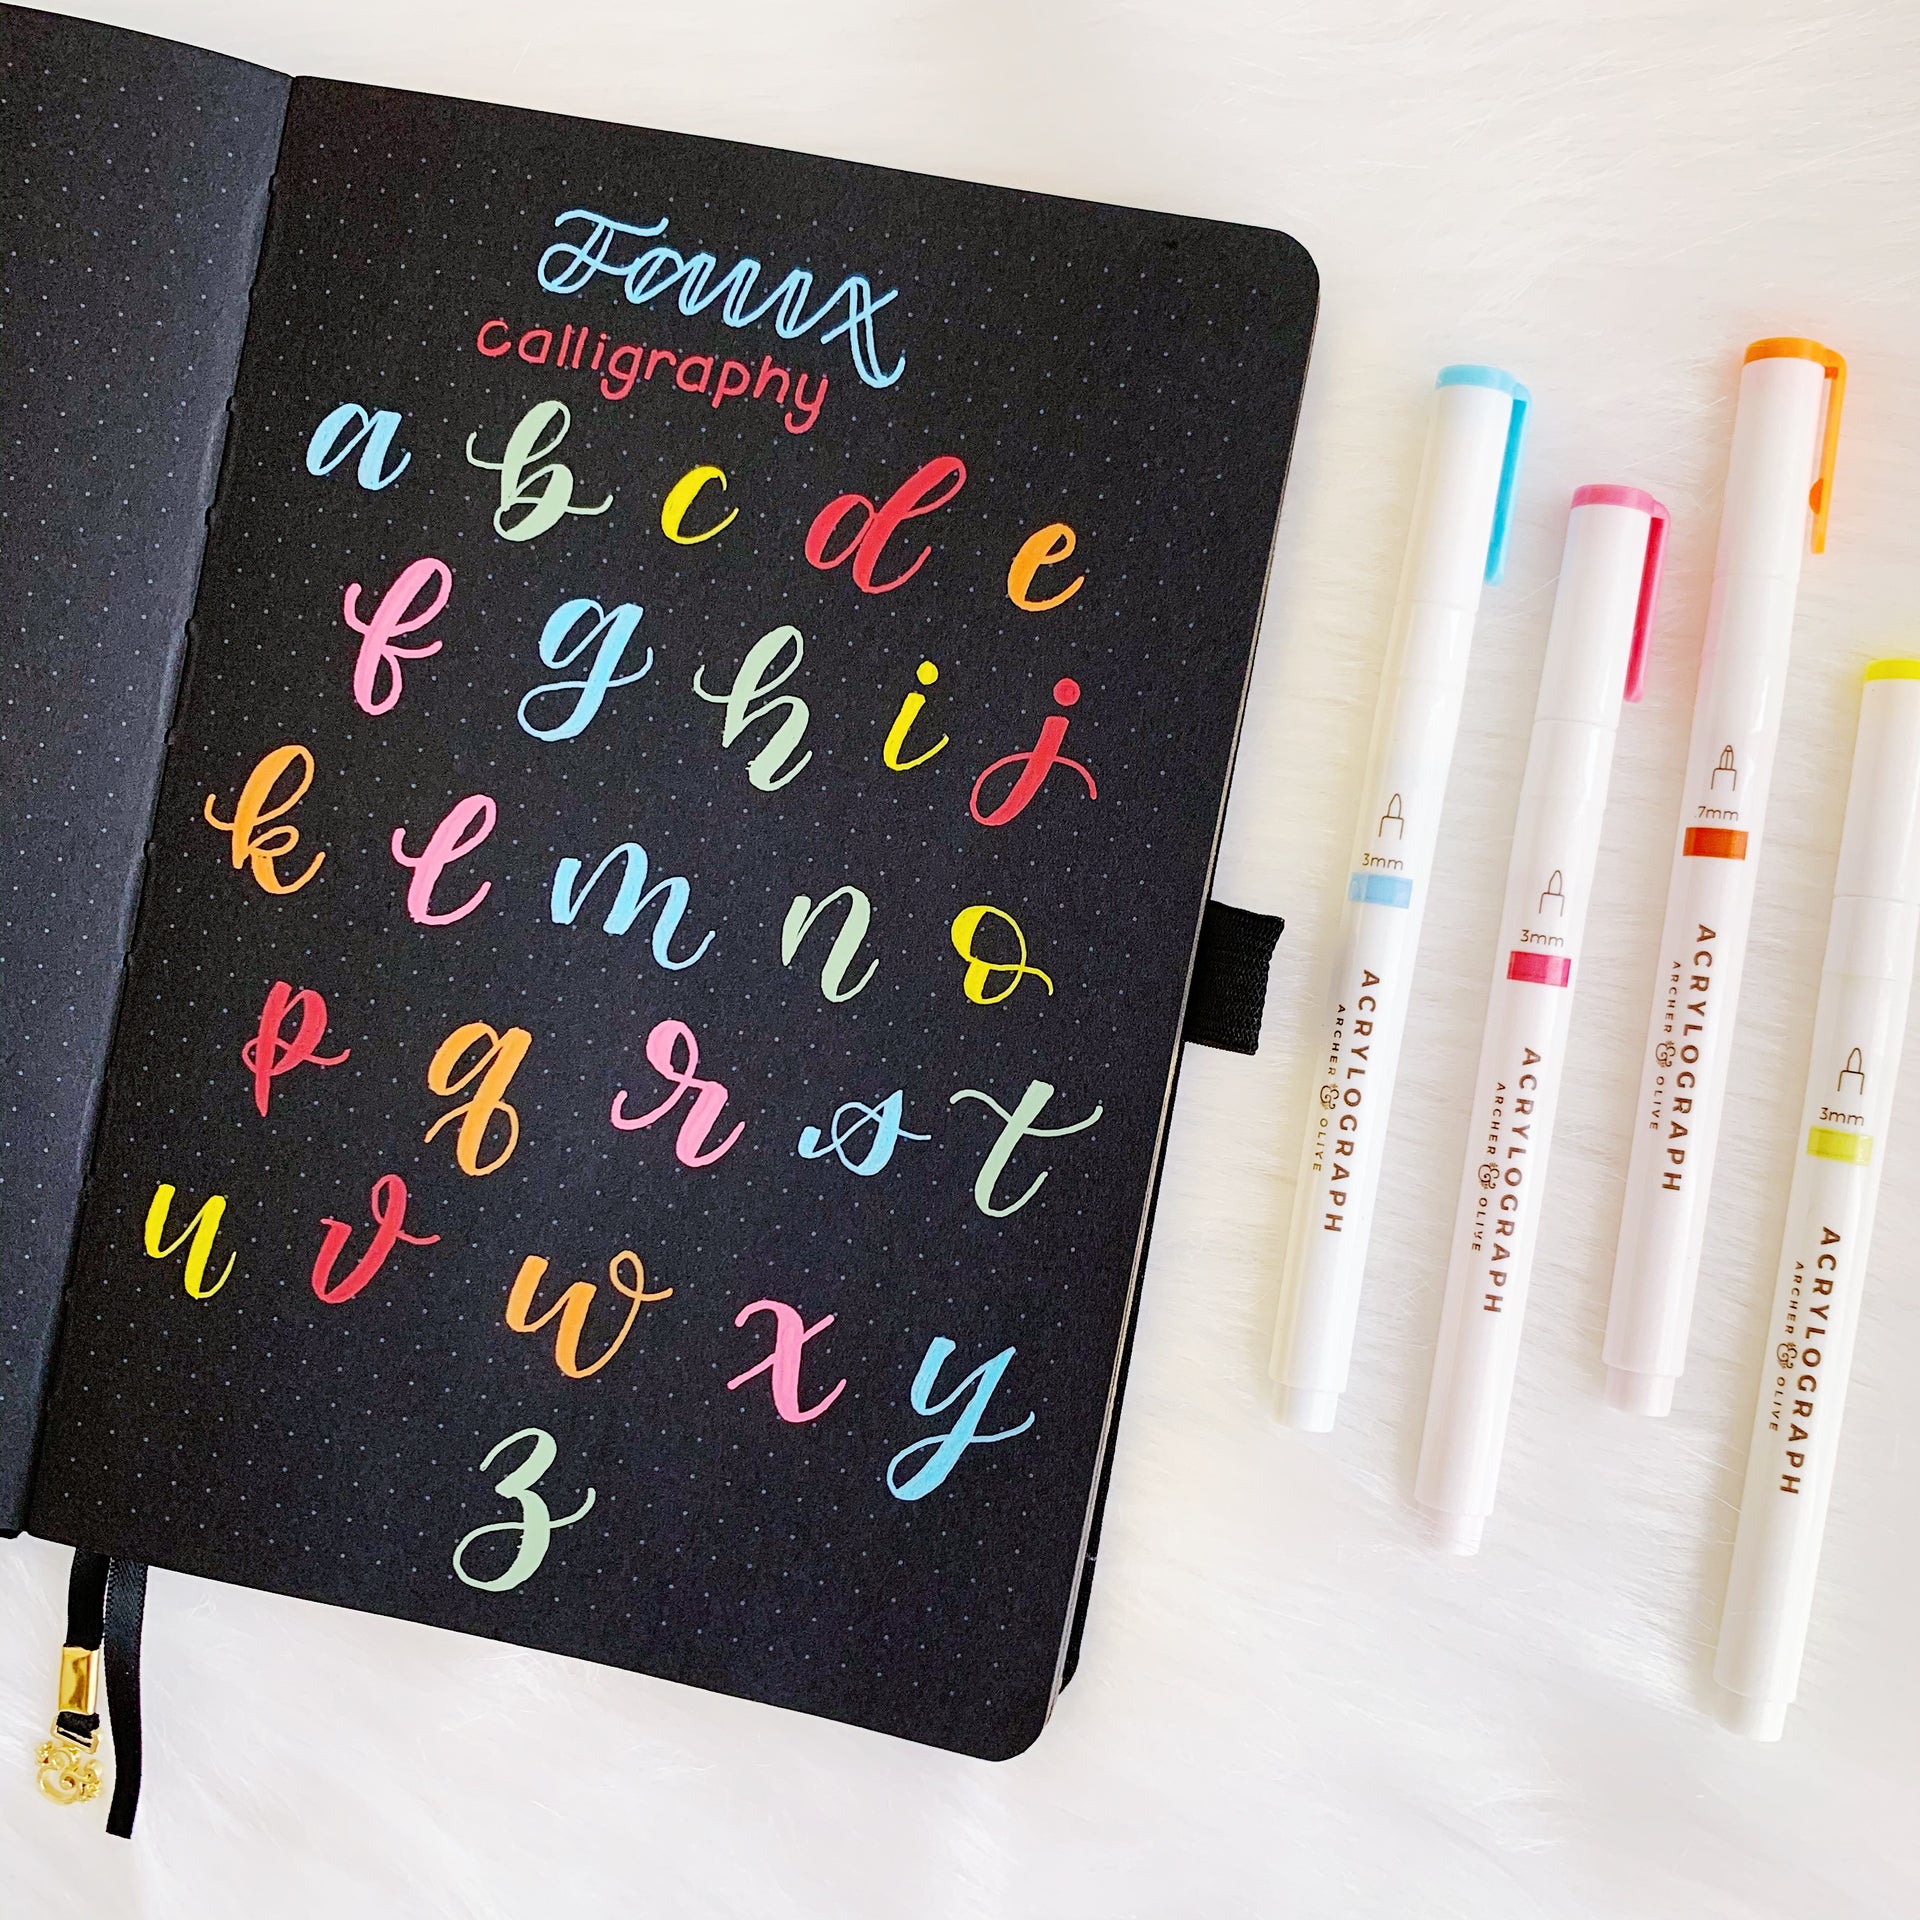 Faux
calligraphy
a b c d e
f g h i j
k l m n o
p q r s t
u v w x y
z
3mm
ACRYLOGRAPH
ARCHER & OLIVE
3mm
ACRYLOGRAPH
ARCHER & OLIVE
.7mm
ACRYLOGRAPH
ARCHER & OLIVE
3mm
ACRYLOGRAPH
ARCHER & OLIVE